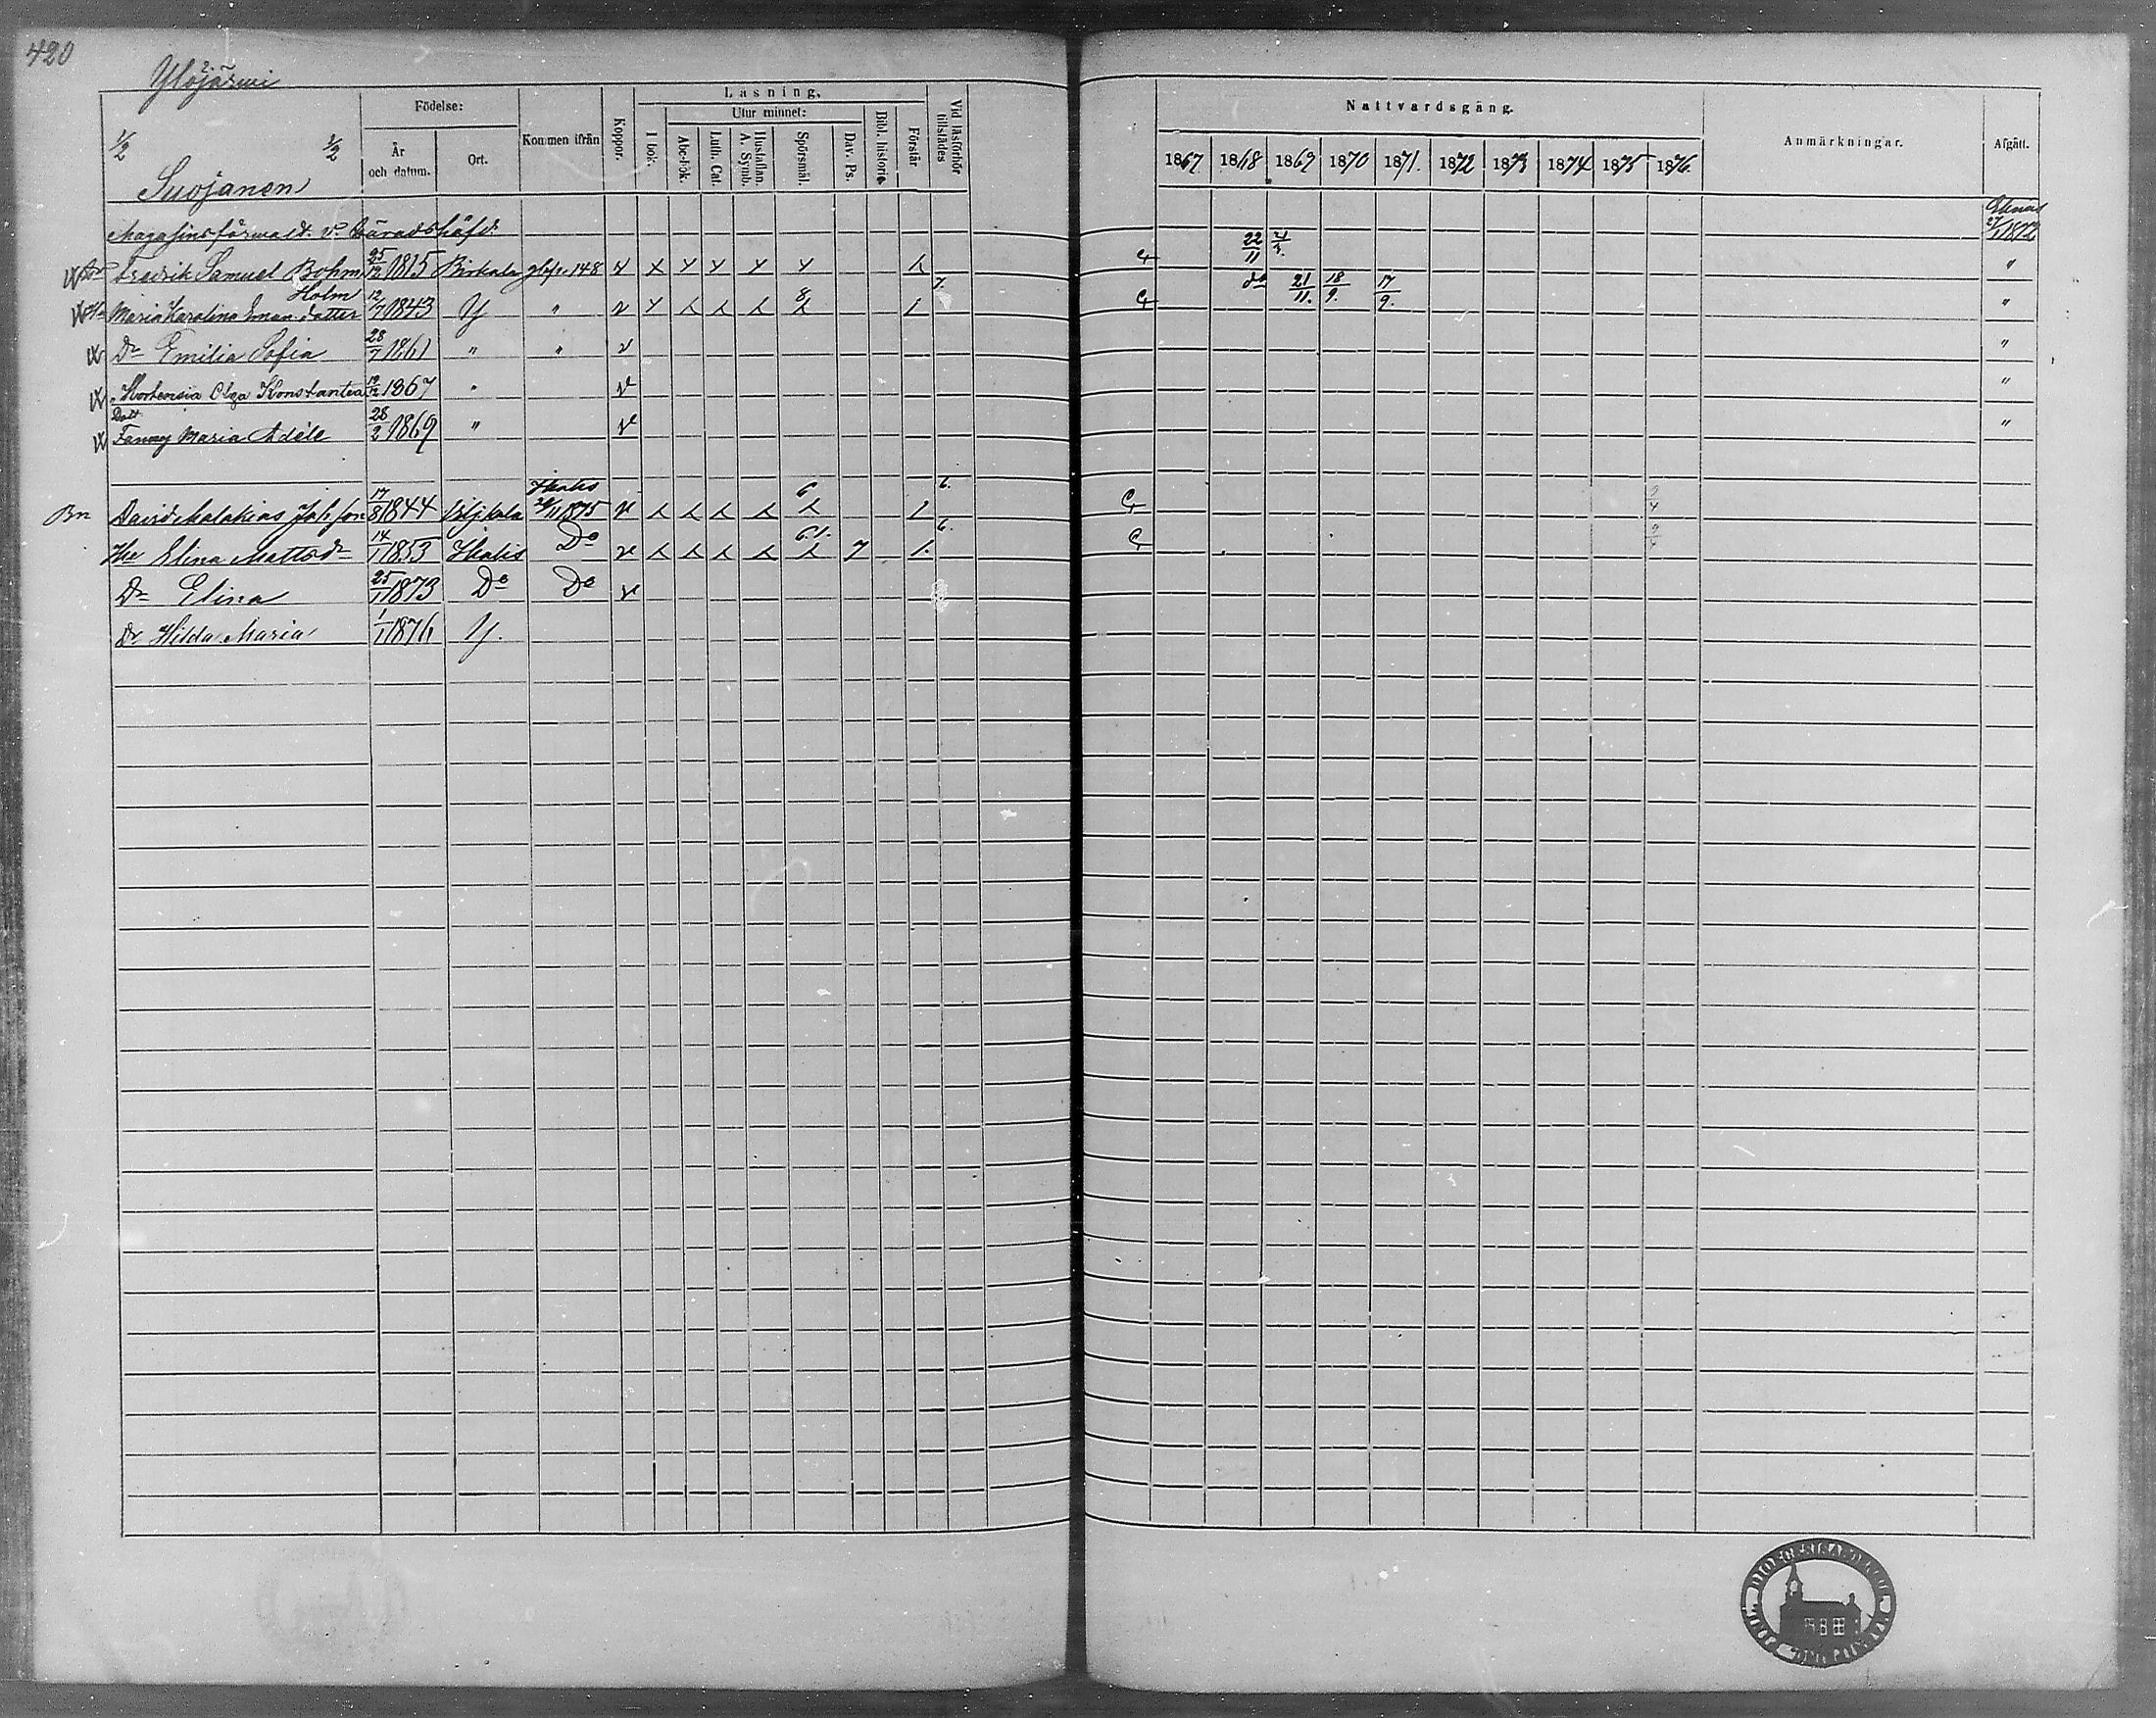 420
Ylöjärvi 2.
1/2 1/2
Suojanen
Födelse:
År och datum.
Ort.
Kommen ifrån
Koppor.
Läsning.
I bok.
Utur minnet:
Abc-Bok.
Luth. Cat.
Hustaflan. A. Symb.
Spörsmål.
Dav. Ps.
Bibl. historie.
Förstår.
Vid läsförhör tillstädes
Nattvardsgång.
1867. 1868 1869 1870 1871. 1872 1873 1874 1875 1876.
Anmärkningar.
Afgått.
Magasinsförvalt.
27/1 1872
Fredrik Samuel Bohm 25/12 1815 Birkala 148 22/11
Holm
Maria Karolina Eman. dotter 12/7 1843 Y " 8 7. do 21/11. 18/9. 17/9. "
Dr Emilia Sofia 28/7 1861 " " "
" Hortensia Olga Konstantea 1867 " "
Dott
Fanny Maria Adéle 28/2 1869 " "
Ikalis
Bn David Malakias Joh. son 17/8 1844 Viljakala /11 1875 6 6.
Hu Elina Mattsdr 14/1 1853 Ikalis Do 6.1. 7 1. 6.
Dr Elina 25/1 1873 Do Do
Dr Hilda Maria 1/1 1876 Y.